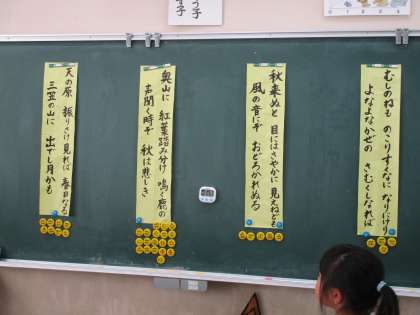 むしのねも のこりすくなに なりにけり
よなよなかぜの さむくしなれば
秋来ぬと 目にはさやかに 見えねども
風の音にぞ おどろかれぬる
奥山に 紅葉踏み分け 鳴く鹿の
声聞く時ぞ 秋は悲しき
天の原 振りさけ見れば 春日なる
三笠の山に 出でし月かも